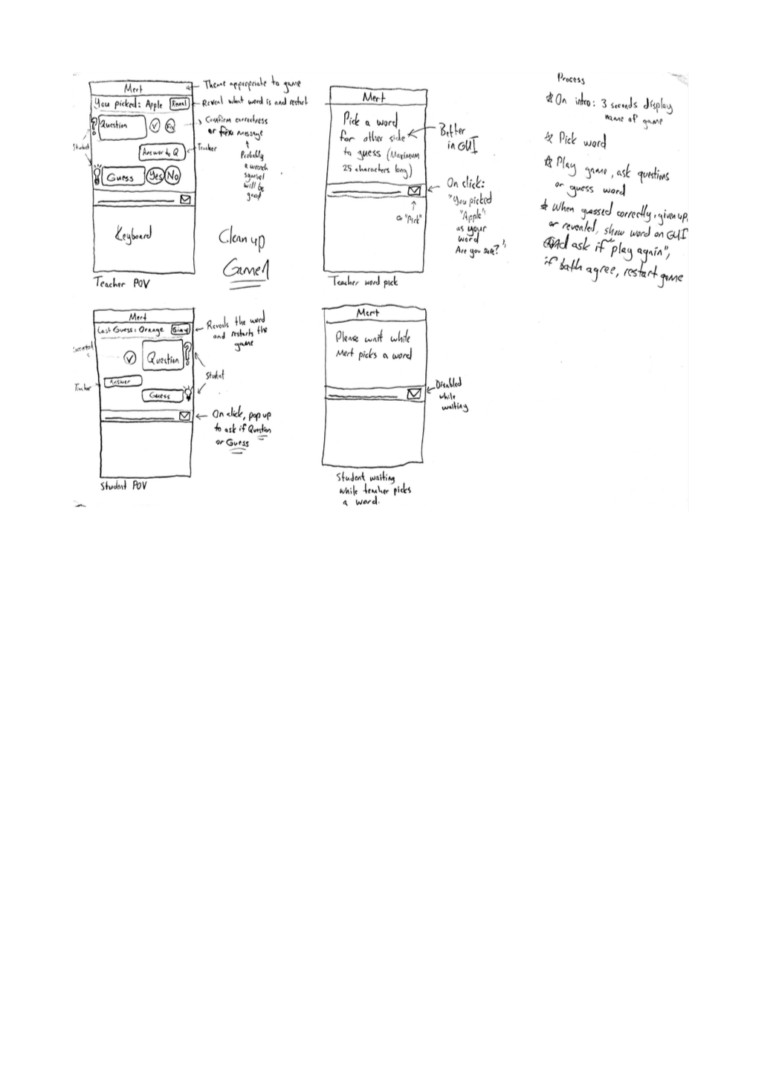 Mert
Theme appropriate to game
You picked: Apple
Reveal
Reveal what word is and restart
Question
Confirm correctness
or message
Student
Probably
a
will be
good
Answer by Q
Teacher
Guess
Yes
No
Keyboard
Clean up
Game 1
Teacher POV
Mert
Pick a word
for other side
to guess (Maximum
25 characters long)
Better
in GUI
On click:
"You picked
"Apple"
as your
word
Are you sure?"
or "Pick"
Teacher word pick
Process
On intro: 3 seconds display
name of game
Pick word
Play game, ask questions
or guess word
When guessed correctly, given up,
or revealed, show word on GUI
and ask if "play again",
if both agree, restart game
Mert
Last Guess: Orange
Reveals the word
and restarts the
game
Question
Student
Teacher
Answer
Guess
On click, pop up
to ask if Question
or Guess
Student POV
Mert
Please wait while
Mert picks a word
Disabled
while
waiting
Student waiting
while teacher picks
a word.